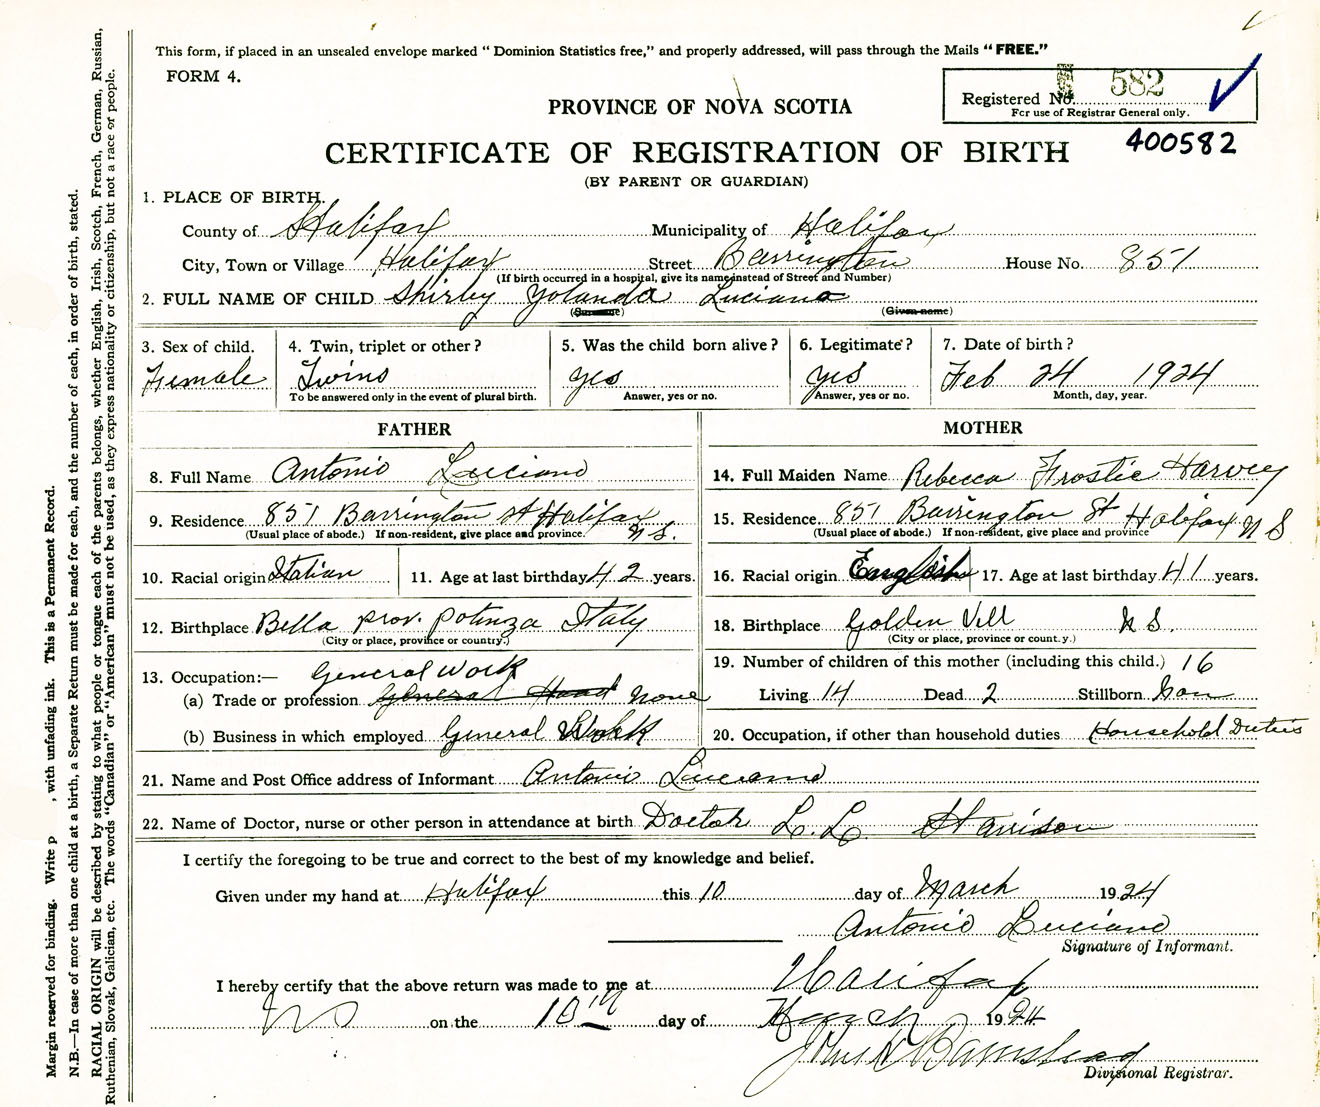 This form, if placed in an unsealed envelope marked "Dominion Statistics free," and properly addressed, will pass through the Mails "FREE."
FORM 4.
Registered No. 582
For use of Registrar General only.
PROVINCE OF NOVA SCOTIA
400582
CERTIFICATE OF REGISTRATION OF BIRTH
(BY PARENT OR GUARDIAN)
1. PLACE OF BIRTH.
County of Halifax Municipality of Halifax
City, Town or Village Halifax Street Barrington House No. 851
(If birth occurred in a hospital, give its name instead of Street and Number)
2. FULL NAME OF CHILD Shirly Yolanda Luciano
(Surname) (Given name)
3. Sex of child. 4. Twin, triplet or other? 5. Was the child born alive? 6. Legitimate? 7. Date of birth?
Female Twins yes yes Feb 24 1924
To be answered only in the event of plural birth. Answer, yes or no. Answer, yes or no. Month, day, year.
FATHER MOTHER
8. Full Name Antonio Luciano 14. Full Maiden Name Rebecca Frostie Harvey
9. Residence 851 Barrington St Halifax N S. 15. Residence 851 Barrington St Halifax N S
(Usual place of abode.) If non-resident, give place and province. (Usual place of abode.) If non-resident, give place and province
10. Racial origin Italian 11. Age at last birthday 42 years. 16. Racial origin English 17. Age at last birthday 41 years.
12. Birthplace Bella prov. potinza Italy 18. Birthplace Golden Vill N S.
(City or place, province or country.) (City or place, province or count.y.)
13. Occupation:— General Work 19. Number of children of this mother (including this child.) 16
(a) Trade or profession General Hand none Living 14 Dead 2 Stillborn
(b) Business in which employed General Work 20. Occupation, if other than household duties Household Duties
21. Name and Post Office address of Informant Antonio Luciano
22. Name of Doctor, nurse or other person in attendance at birth Doctor L. L. Harrison
I certify the foregoing to be true and correct to the best of my knowledge and belief.
Given under my hand at Halifax this 10 day of March 1924
Antonio Luciano
Signature of Informant.
I hereby certify that the above return was made to me at Halifax
NS on the 10th day of March 1924
John H Barnstead
Divisional Registrar.
Margin reserved for binding. Write p , with unfading ink. This is a Permanent Record.
N.B.—In case of more than one child at a birth, a Separate Return must be made for each, and the number of each, in order of birth, stated.
RACIAL ORIGIN will be described by stating to what people or tongue each of the parents belongs, whether English, Irish, Scotch, French, German, Russian,
Ruthenian, Slovak, Galician, etc. The words "Canadian" or "American" must not be used, as they express nationality or citizenship, but not a race or people.